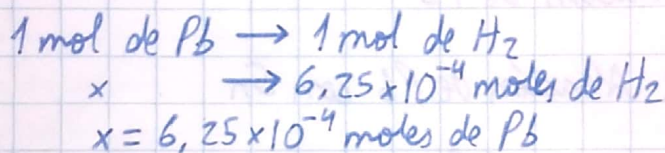 1 mol de Pb → 1 mol de H₂
x → 6,25×10⁻⁴ moles de H₂
x = 6,25×10⁻⁴ moles de Pb